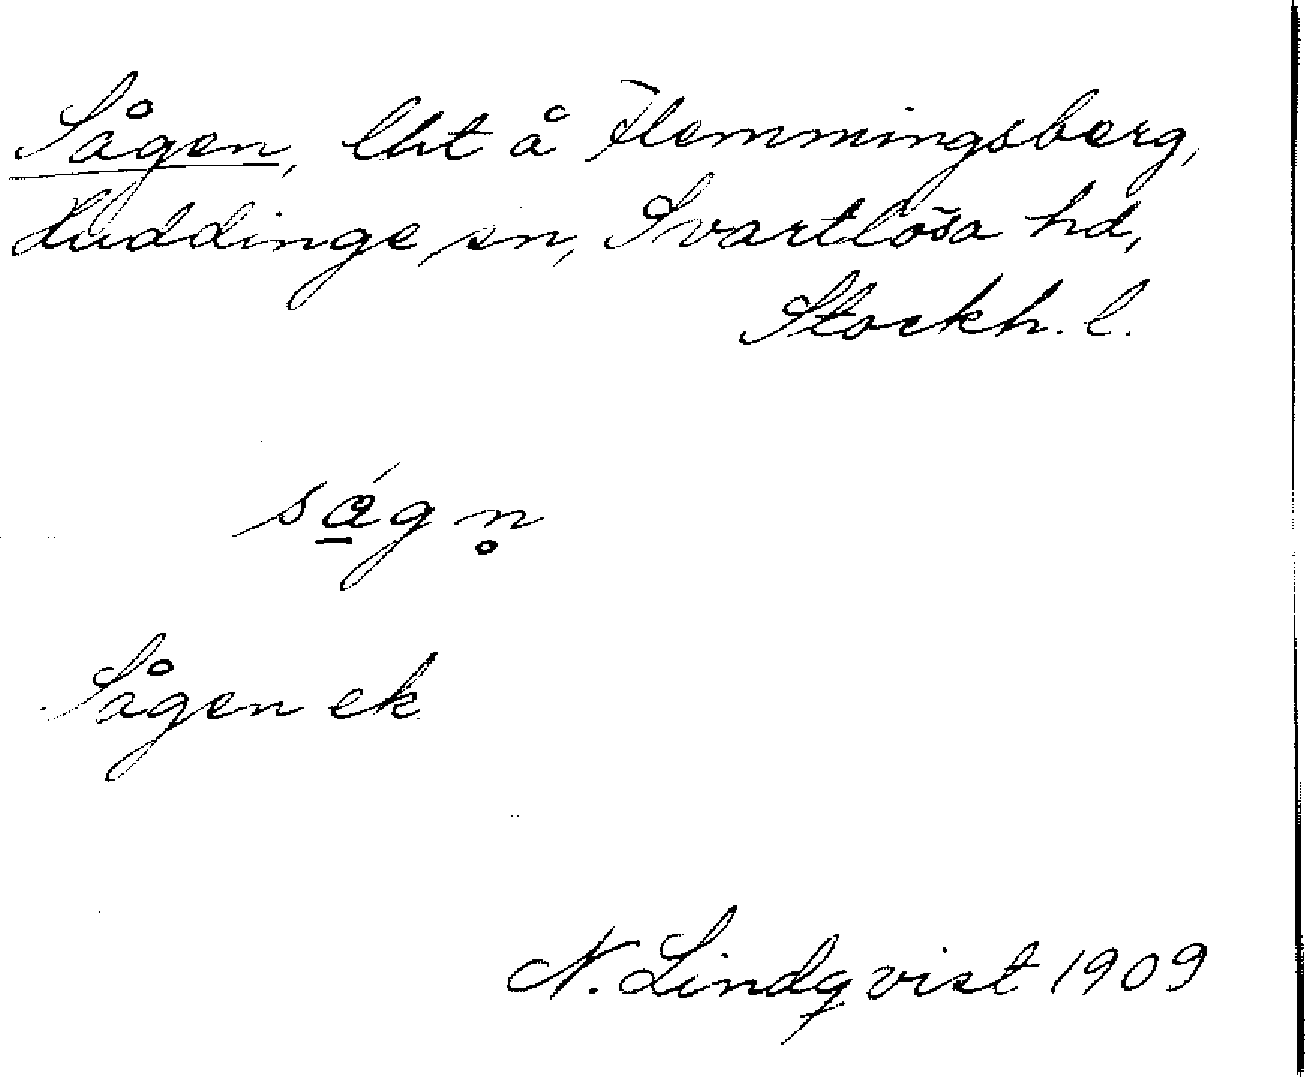 Sågen, lht å Flemmingsberg,
Huddinge sn, Svartlösa hd,
Stockh. l.
så̱gn̥
Sågen ek
N. Lindqvist 1909